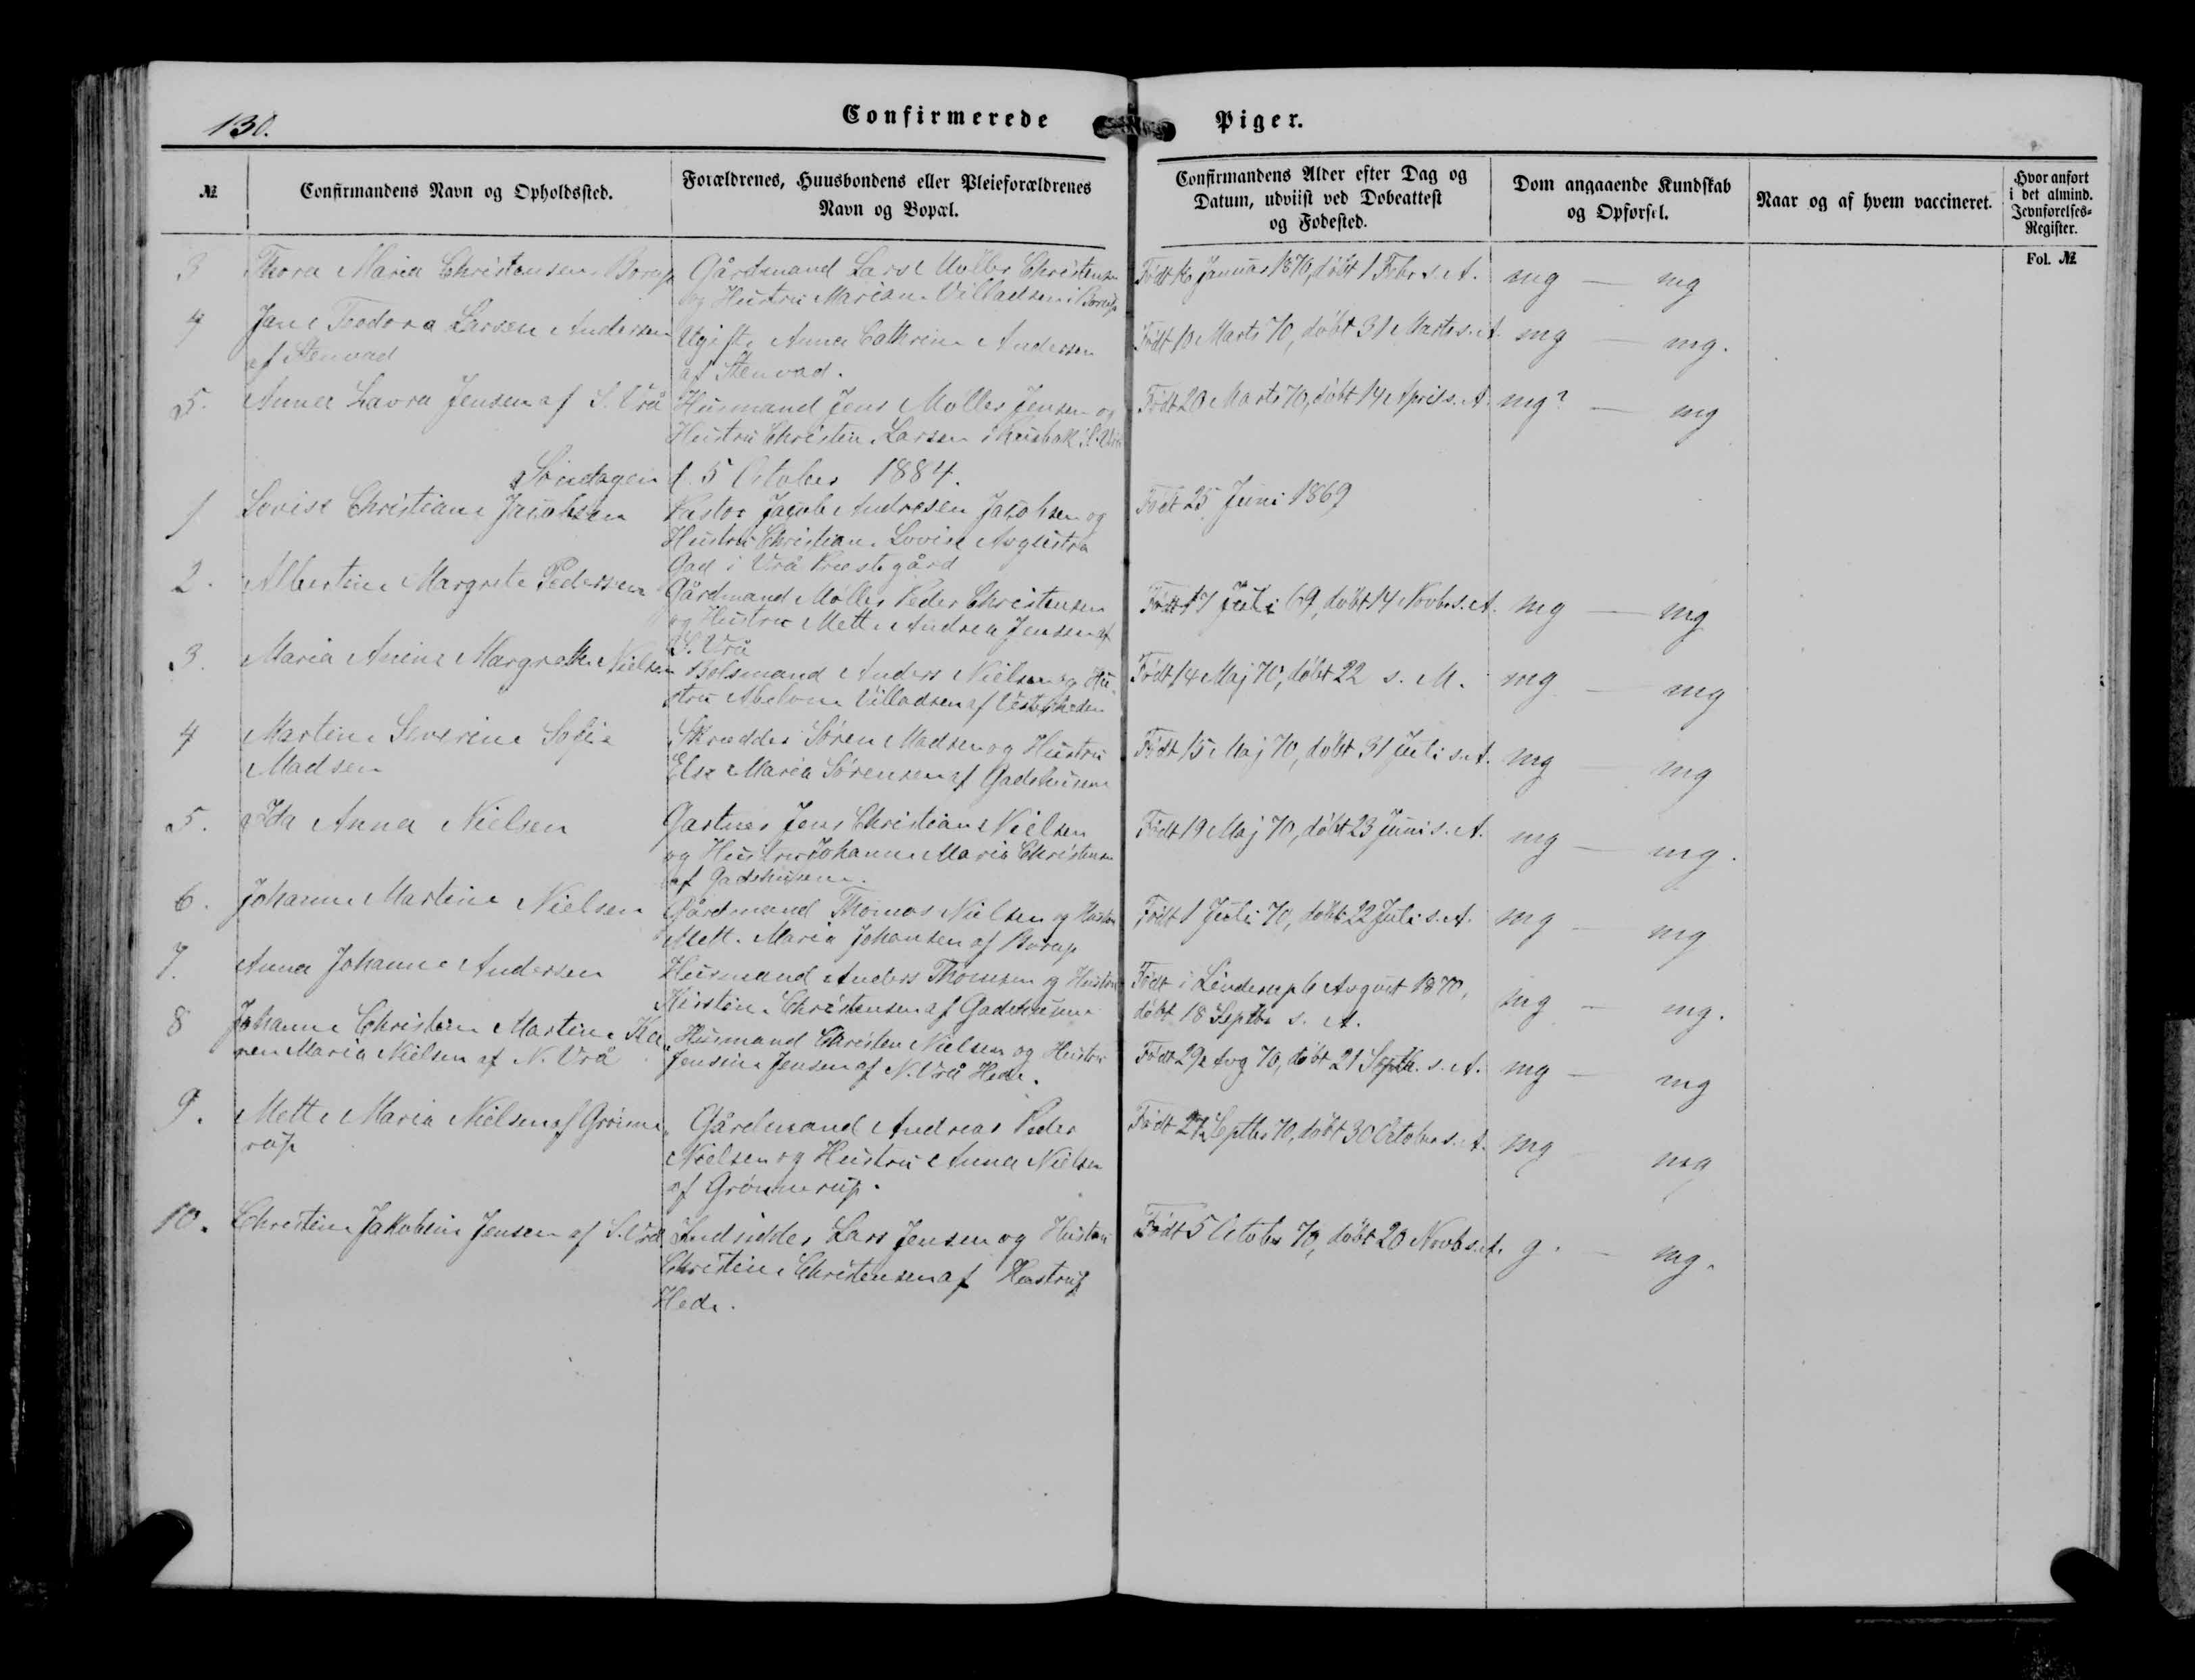 130.
Confirmerede Piger.
№ Confirmandens Navn og Opholdssted. Forældrenes, Huusbondens eller Pleieforældrenes Navn og Bopæl. Confirmandens Alder efter Dag og Datum, udviist ved Døbeattest og Fødested. Dom angaaende Kundskab og Opførsel. Naar og af hvem vaccineret. Hvor anført i det almind. Jevnførelses-Register.
Fol. №
3 Thora Maria Christensen Borup Gårdmand Lars Møller Christensen Født 16 Januar 1870, døbt 1 Febr s. A. mg — mg
og Hustru Mariane Villadsen i Borup
4 Jane Teodora Larsen Andersen Ugifte Anna Cathrine Andersen Født 10 Marts 70, døbt 31 Marts s. A. mg — mg.
af Stenvad af Stenvad.
5. Anna Lavra Jensen af S. Vrå Husmand Jens Møller Jensen og Født 20 Marts 70, døbt 14 April s. A. mg? — mg
Hustru Christine Larsen i S. Vrå
Søndagen d. 5 October 1884.
1 Lovise Christiane Jacobsen Pastor Jacob Andresen Jacobsen og Født 25 Juni 1869
Hustru Christiane Lovise Avgusta
Gad i Vrå Præstegård
2. Albertine Margrete Pedersen Gårdmand Møller Peder Christensen Født 17 Juli 69, døbt 14 Novbr s. A. mg — mg
og Hustru Mette Andrea Jensen af
S. Vrå
3. Maria Anine Margrethe Nielsen Bolsmand Anders Nielsen og Hu- Født 14 Maj 70, døbt 22 s. M. mg — mg
stru Abelone Villadsen af Vesterheden
4 Martine Severine Sofie Skrædder Søren Madsen og Hustru Født 15 Maj 70, døbt 31 Juli s. A. mg — mg
Madsen Else Maria Sørensen af Gadehusene
5. Ida Anna Nielsen Gartner Jens Christian Nielsen Født 19 Maj 70, døbt 23 Juni s. A. mg — mg.
og Hustru Johanne Maria Christensen
af Gadehusene.
6. Johanne Martine Nielsen Gårdmand Thomas Nielsen og Hustru Født 1 Juli 70, døbt 22 Juli s. A. mg — mg
Mette Maria Johansen af Borup
7. Anna Johanne Andersen Husmand Anders Thomsen og Hustru Født i Linderup 6 Avgust 1870, mg — mg.
Kirstine Christensen af Gadehusene døbt 18 Septbr s. A.
8 Johanne Christine Martine Ka- Husmand Christen Nielsen og Hustru Født 29 Avg 70, døbt 21 Septb. s. A. mg — mg
ren Maria Nielsen af N. Vrå Jensine Jensen af N. Vrå Hede.
9. Mette Maria Nielsen af Grønne- Gårdmand Andreas Peder Født 27 Septbr 70, døbt 30 October s. A. mg mg
rup Nielsen og Hustru Anna Nielsen
af Grønnerup.
10. Christine Jakobine Jensen af S. Vrå Indsidder Lars Jensen og Hustru Født 5 Octobr 70, døbt 20 Novb s. A. g. — mg.
Christine Christensen af Hæstrup
Hede.